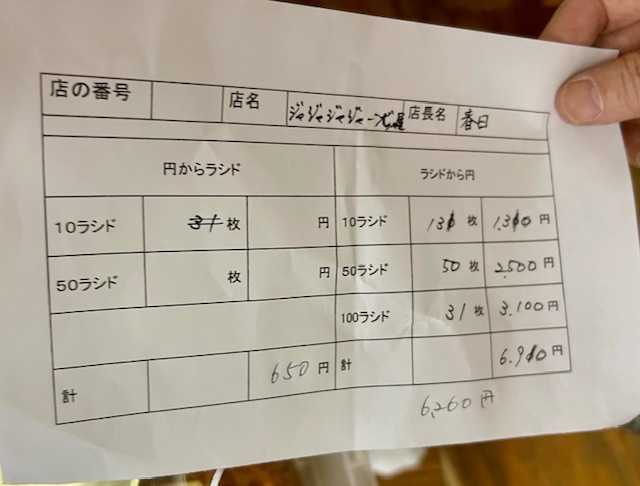 店の番号 店名 ジャジャジャジャーン 店長名 春日
円からラシド ラシドから円
10ラシド 31枚 円 10ラシド 枚 円
50ラシド 枚 円 50ラシド 50枚 2,500円
100ラシド 31枚 3,100円
計 650円 計 円
6,260円